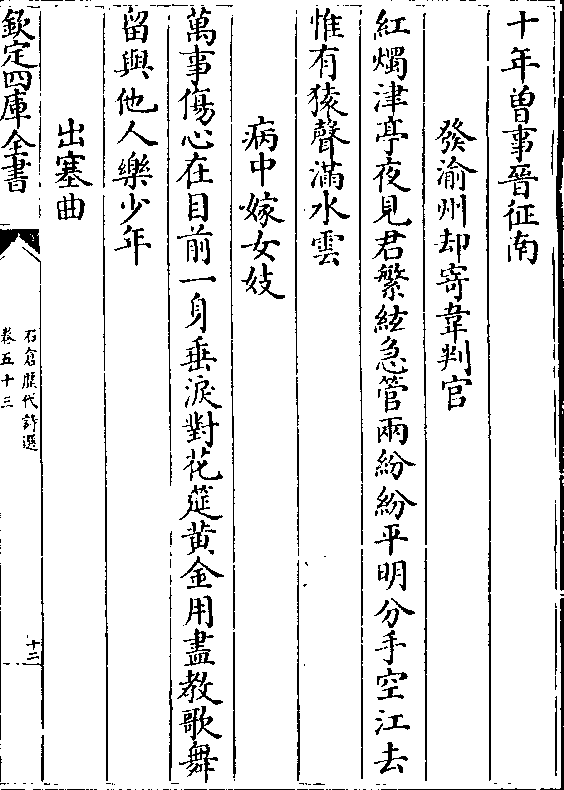 十年曽事晉征南
發渝州却寄韋判官
紅燭津亭夜見君繁絃急管兩紛紛平明分手空江去
惟有猿聲滿水雲
病中嫁女妓
萬事傷心在目前一身垂淚對花筵黄金用盡教歌舞
留與他人樂少年
出塞曲
欽定四庫全書
石倉歷代詩選
卷五十三
十二